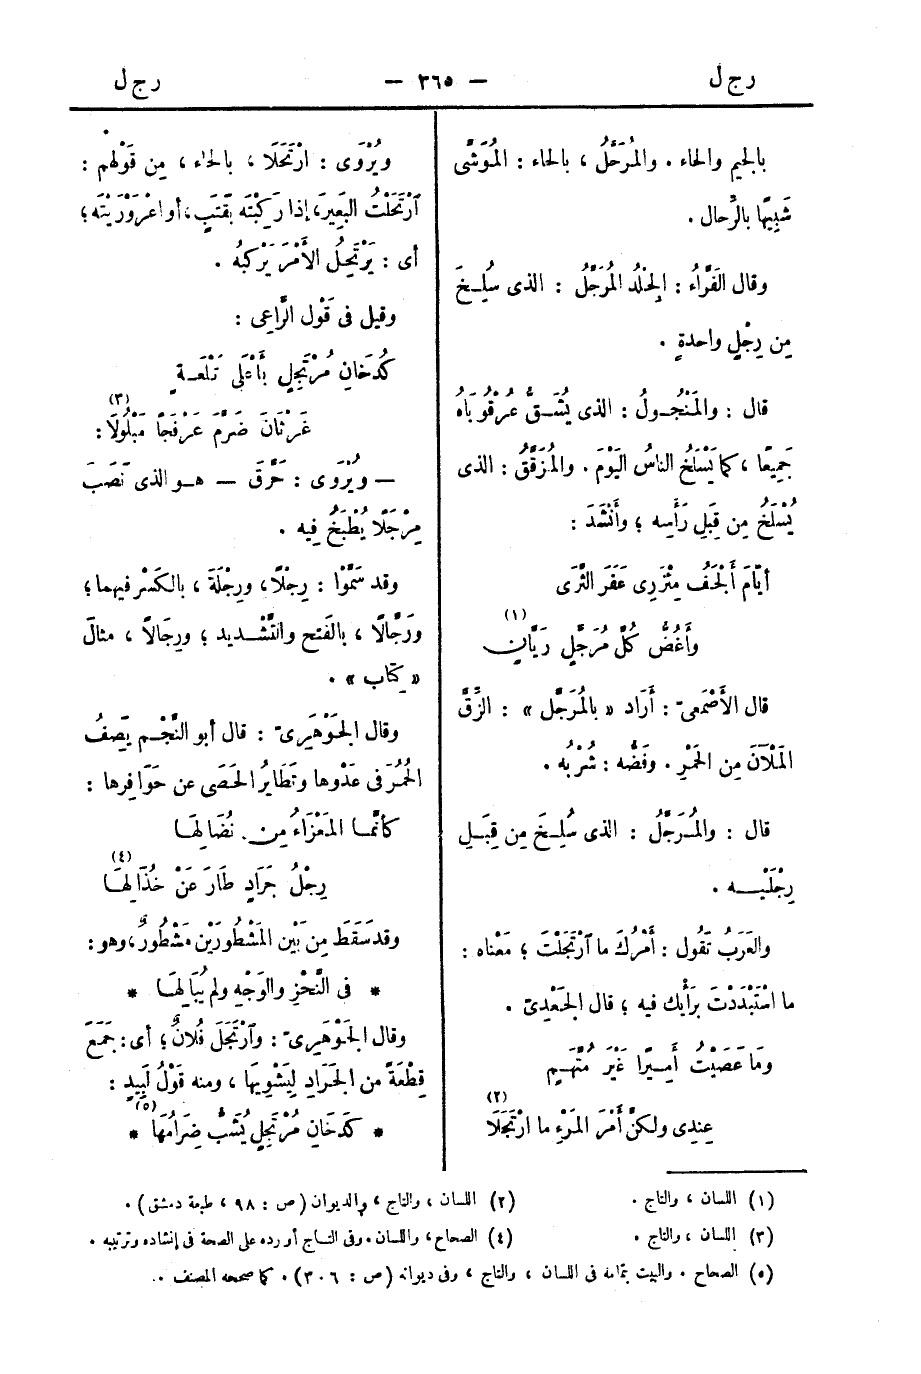 رج ل
— ٣٦٥ —
رج ل
بالجيم والحاء . والمُرَحَّلُ ، بالحاء : المُوَشَّى
شَبِيهًا بالرِّحال .
وقال الفَرَّاءُ : الجِلْدُ المُرَجَّلُ : الذى سُلِخَ
مِن رِجْلٍ واحدةٍ .
قال : والمَنْجُولُ : الذى يُشَقُّ عُرْقُوبَاهُ
جَمِيعًا ، كما يَسْلَخُ الناسُ اليَوْمَ . والمُزَقَّقُ : الذى
يُسْلَخُ مِن قِبَلِ رَأْسِه ؛ وأَنْشَدَ :
أيّامَ أَلْحَفُ مِئْزَرِى عَفَرَ الثَّرَى
وأَغُضُّ كُلَّ مُرَجَّلٍ رَيَّانِ (١)
قال الأَصْمَعىّ : أَرَاد « بالمُرَجَّل » : الزِّقَّ
المَلْآنَ مِن الخَمْرِ . وغَضُّه : شُرْبُه .
قال : والمُرَجَّلُ : الذى سُلِخَ مِن قِبَلِ
رِجْلَيْه .
والعَرَبُ تَقُول : أَمْرُكَ ما ٱرْتَجَلْتَ ؛ مَعْناه :
ما اسْتَبْدَدْتَ بِرَأْيِك فيه ؛ قال الجَعْدِىّ .
ومَا عَصَيْتُ أَمِيرًا غَيْرَ مُتَّهَمٍ
عِنْدِى ولكنَّ أَمْرَ المَرْءِ ما ارْتَجَلَا (٢)
ويُرْوَى : ارْتَحَلَا ، بالحاء ، مِن قَوْلهم :
ٱرْتَحَلْتُ البَعِيرَ ، إذا رَكِبْتَه بقَتَبٍ ، أو اعْرَوْرَيْتَه ؛
أى : يَرْتَحِلُ الأَمْرَ يَرْكَبُه .
وقيل فى قَوْل الرَّاعِى :
كَدُخَانِ مُرْتَجِلٍ بأَعْلَى تَلْعَةٍ
غَرْثَانَ ضَرَّمَ عَرْفَجًا مَبْلُولًا (٣) :
— ويُرْوَى : حَرَّقَ — هو الذى نَصَبَ
مِرْجَلًا يُطْبَخُ فيه .
وقد سَمَّوْا : رِجْلًا ، ورِجْلَةَ ، بالكَسْر فيهما ؛
ورَجَّالًا ، بالفَتح والتَّشْديد ؛ ورِجَالًا ، مثالَ
« كِتاب » .
وقال الجَوْهَرِىّ : قال أبو النَّجْم يَصِفُ
الحُمُرَ فى عَدْوِها وتَطَايُرَ الحَصَى عن حَوَافِرها :
كأنَّما المَعْزَاءُ مِن نِضَالِهَا
رِجْلُ جَرَادٍ طَارَ عَنْ خُذَّالِهَا (٤)
وقد سَقَطَ مِن بَيْن المَشْطُورَيْن مَشْطُورٌ ، وهو :
* فى النَّحْزِ والوَجْهِ ولم يُبَالِهَا *
وقال الجَوْهَرِىّ : وٱرْتَجَلَ فُلانٌ ؛ أى : جَمَعَ
قِطْعَةً من الجَرَادِ لِيَشْوِيَهَا ، ومنه قَوْلُ لَبِيدٍ :
* كَدُخَانِ مُرْتَجِلٍ يُشَبُّ ضِرَامُهَا (٥) *
(١) اللسان ، والتاج .
(٢) اللسان ، والتاج ، والديوان ( ص : ٩٨ ، طبعة دمشق ) .
(٣) اللسان ، والتاج .
(٤) الصحاح ، واللسان . وفى التاج أورده على الصحة فى إنشاده وترتيبه .
(٥) الصحاح . والبيت بتمامه فى اللسان ، والتاج ، وفى ديوانه ( ص : ٣٠٦ ) . كما صححه المصنف .